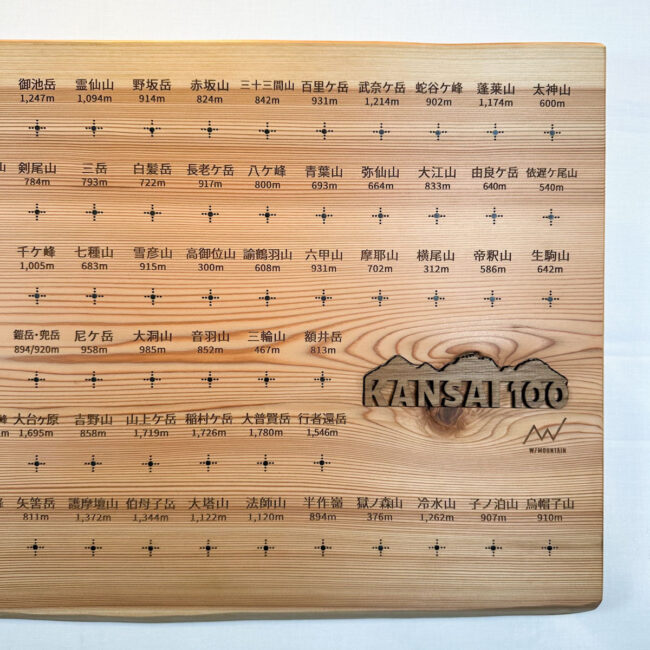 御池岳 霊仙山 野坂岳 赤坂山 三十三間山 百里ケ岳 武奈ケ岳 蛇谷ケ峰 蓬莱山 太神山
1,247m 1,094m 914m 824m 842m 931m 1,214m 902m 1,174m 600m
山 剣尾山 三岳 白髪岳 長老ケ岳 八ケ峰 青葉山 弥仙山 大江山 由良ケ岳 依遅ケ尾山
784m 793m 722m 917m 800m 693m 664m 833m 640m 540m
千ケ峰 七種山 雪彦山 高御位山 諭鶴羽山 六甲山 摩耶山 横尾山 帝釈山 生駒山
1,005m 683m 915m 300m 608m 931m 702m 312m 586m 642m
鎧岳・兜岳 尼ケ岳 大洞山 音羽山 三輪山 額井岳
894/920m 958m 985m 852m 467m 813m
KANSAI 100
峰 大台ケ原 吉野山 山上ケ岳 稲村ケ岳 大普賢岳 行者還岳
m 1,695m 858m 1,719m 1,726m 1,780m 1,546m
W/MOUNTAIN
峰 矢筈岳 護摩壇山 伯母子岳 大塔山 法師山 半作嶺 嶽ノ森山 冷水山 子ノ泊山 烏帽子山
811m 1,372m 1,344m 1,122m 1,120m 894m 376m 1,262m 907m 910m